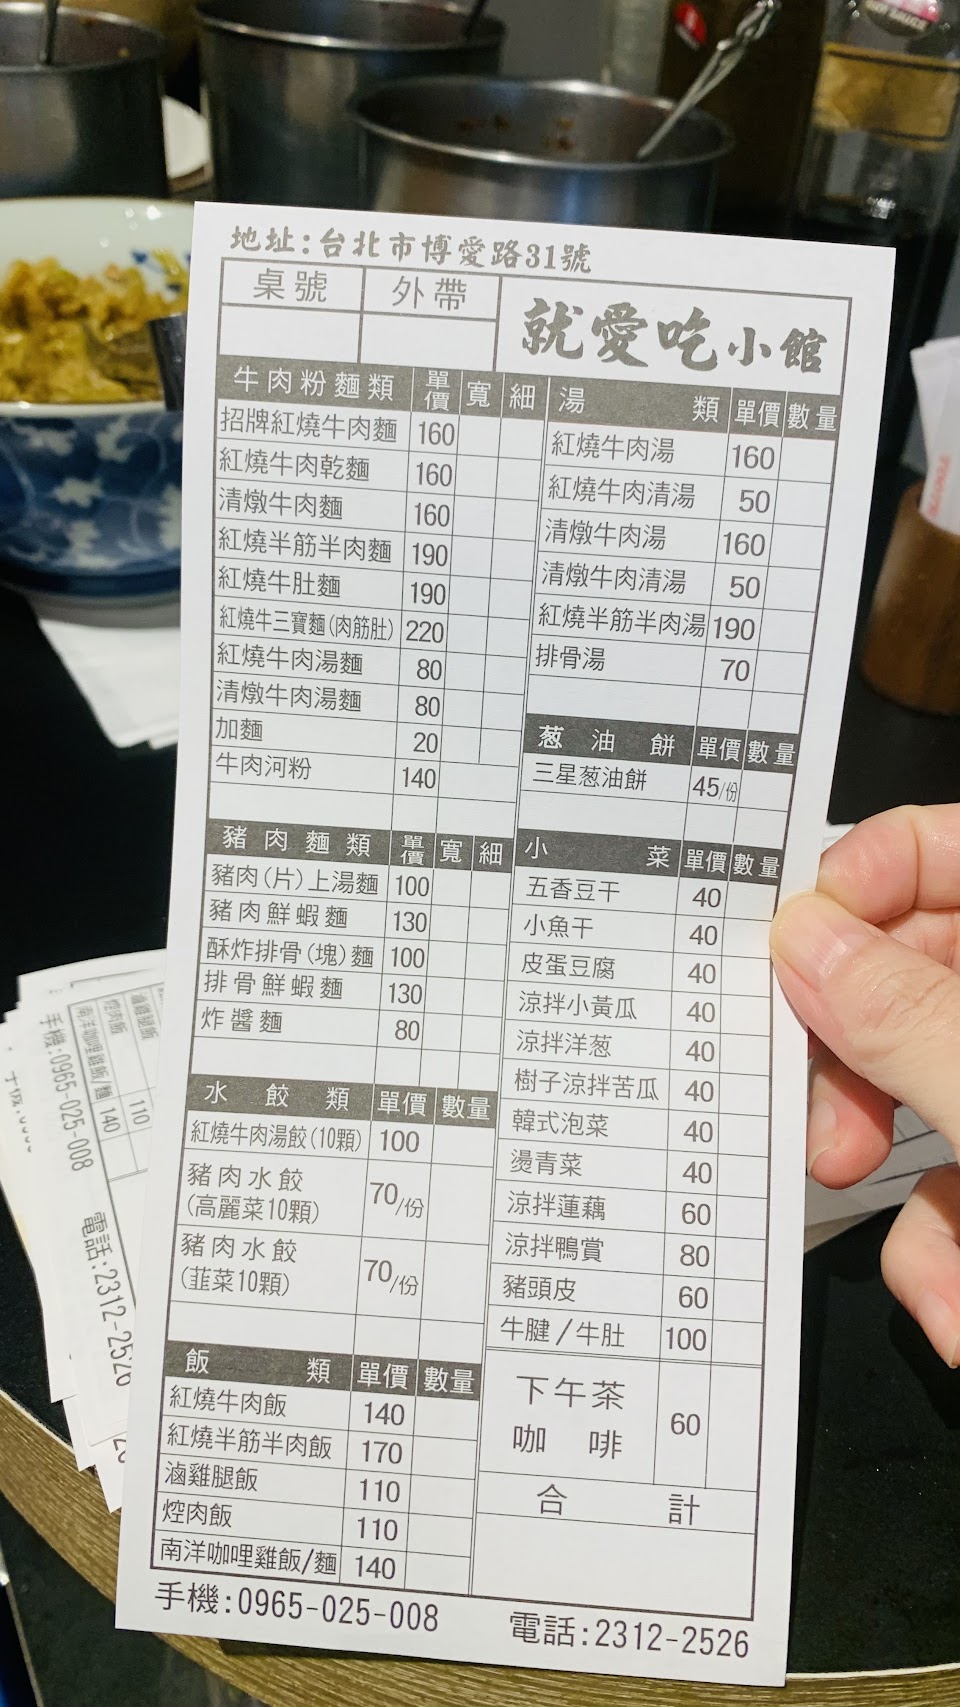 地址:台北市博愛路31號
桌號 外帶
就愛吃小館
牛肉粉麵類 單價 寬 細
招牌紅燒牛肉麵 160
紅燒牛肉乾麵 160
清燉牛肉麵 160
紅燒半筋半肉麵 190
紅燒牛肚麵 190
紅燒牛三寶麵(肉筋肚) 220
紅燒牛肉湯麵 80
清燉牛肉湯麵 80
加麵 20
牛肉河粉 140
豬肉麵類 單價 寬 細
豬肉(片)上湯麵 100
豬肉鮮蝦麵 130
酥炸排骨(塊)麵 100
排骨鮮蝦麵 130
炸醬麵 80
水餃類 單價 數量
紅燒牛肉湯餃(10顆) 100
豬肉水餃
(高麗菜10顆) 70/份
豬肉水餃
(韮菜10顆) 70/份
飯類 單價 數量
紅燒牛肉飯 140
紅燒半筋半肉飯 170
滷雞腿飯 110
焢肉飯 110
南洋咖哩雞飯/麵 140
湯類 單價 數量
紅燒牛肉湯 160
紅燒牛肉清湯 50
清燉牛肉湯 160
清燉牛肉清湯 50
紅燒半筋半肉湯 190
排骨湯 70
葱油餅 單價 數量
三星葱油餅 45/份
小菜 單價 數量
五香豆干 40
小魚干 40
皮蛋豆腐 40
涼拌小黃瓜 40
涼拌洋葱 40
樹子涼拌苦瓜 40
韓式泡菜 40
燙青菜 40
涼拌蓮藕 60
涼拌鴨賞 80
豬頭皮 60
牛腱/牛肚 100
下午茶
咖啡 60
合計
手機:0965-025-008 電話:2312-2526
滷雞腿飯 110
焢肉飯 110
南洋咖哩雞飯/麵 140
手機:0965-025-008
電話:2312-2526